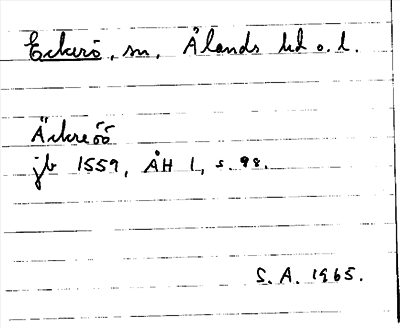 Eckerö, sn, Ålands hd o. l.
Äckreöö
jb 1559, ÅH 1, s. 98.
S. A. 1965.